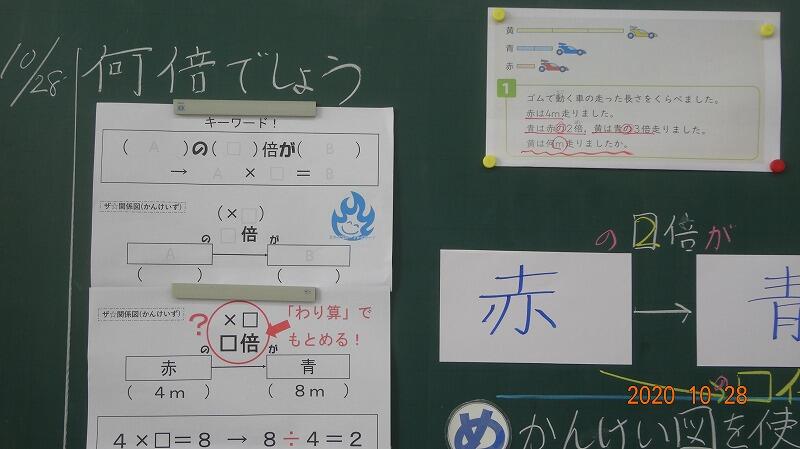 10/28
何倍でしょう
キーワード！
( A )の( □ )倍が( B )
→ A × □ = B
ザ☆関係図(かんけいず)
(×□)
の □倍 が
A B
( ) ( )
ザ☆関係図(かんけいず)
？
×□
の □倍 が
「わり算」で
もとめる！
赤 青
( 4m ) ( 8m )
4×□=8 → 8÷4=2
黄
青
赤
1
ゴムで動く車の走った長さをくらべました。
赤は4m走りました。
青は赤の2倍，黄は青の3倍走りました。
黄は何m走りましたか。
の2倍が
赤 → 青
の
めかんけい図を使
2020 10 28